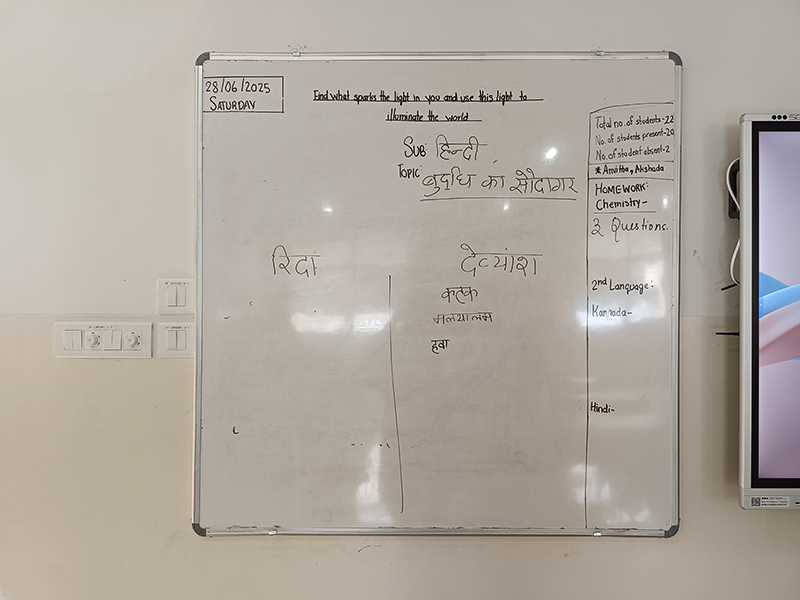 28/06/2025
SATURDAY
Find what sparks the light in you and use this light to
illuminate the world
SUB: हिन्दी
TOPIC: बुद्धि का सौदागर
Total no. of students-22
No. of students present-20
No. of student absent-2
* Anvitha, Akshada
HOMEWORK:
Chemistry-
3 Questions.
2nd Language:
Kannada-
Hindi-
रिदा
देव्यांश
मलयालम
हवा